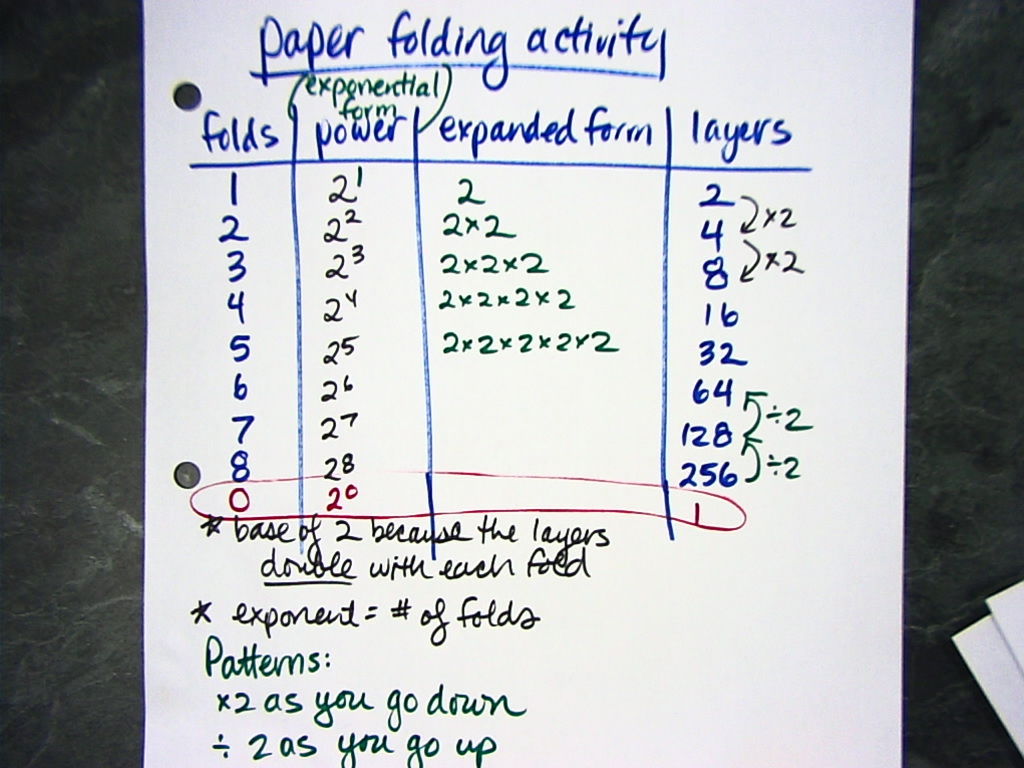 paper folding activity
(exponential form)
folds power expanded form layers
1 2¹ 2 2
2 2² 2×2 4 ×2
3 2³ 2×2×2 8 ×2
4 2⁴ 2×2×2×2 16
5 2⁵ 2×2×2×2×2 32
6 2⁶ 64
7 2⁷ 128 ÷2
8 2⁸ 256 ÷2
0 2⁰ 1
* base of 2 because the layers
double with each fold
* exponent = # of folds
Patterns:
×2 as you go down
÷ 2 as you go up